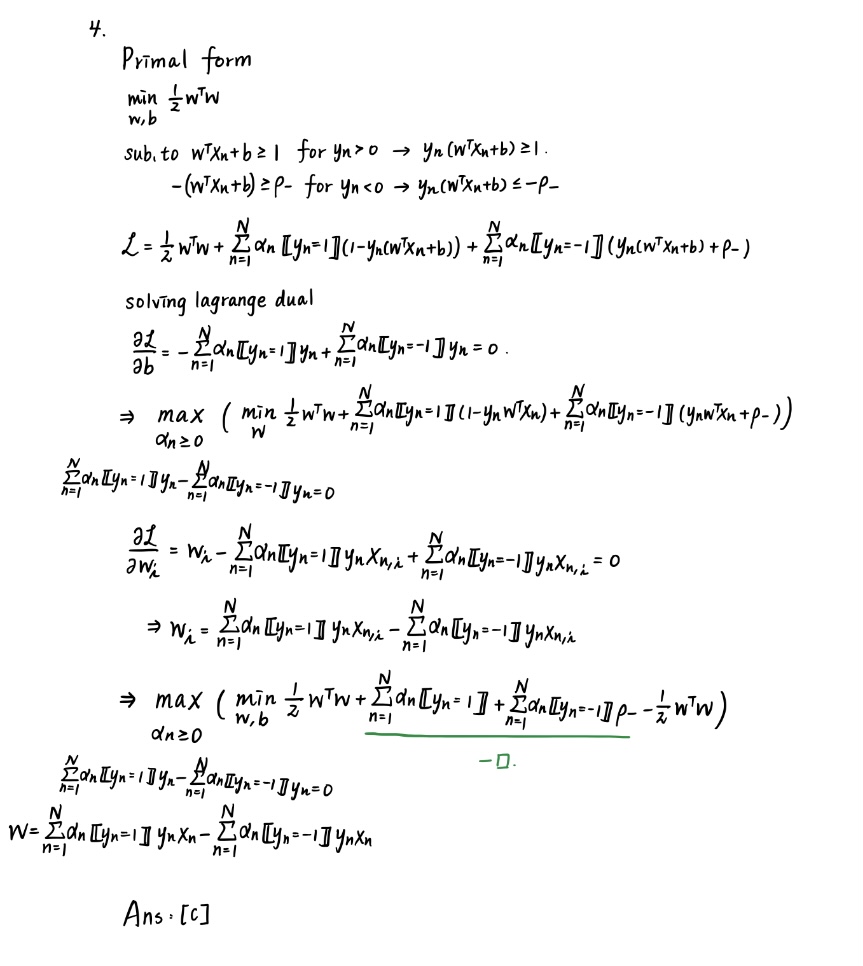 4.
Primal form
min w,b ½ wᵀw
sub. to wᵀxₙ+b ≥ 1 for yₙ > 0 → yₙ(wᵀxₙ+b) ≥ 1.
-(wᵀxₙ+b) ≥ ρ₋ for yₙ < 0 → yₙ(wᵀxₙ+b) ≤ -ρ₋
ℒ = ½ wᵀw + Σₙ₌₁ᴺ αₙ ⟦yₙ=1⟧(1-yₙ(wᵀxₙ+b)) + Σₙ₌₁ᴺ αₙ⟦yₙ=-1⟧(yₙ(wᵀxₙ+b)+ρ₋)
solving lagrange dual
∂ℒ/∂b = - Σₙ₌₁ᴺ αₙ⟦yₙ=1⟧yₙ + Σₙ₌₁ᴺ αₙ⟦yₙ=-1⟧yₙ = 0.
⇒ max αₙ≥0 ( min w ½ wᵀw + Σₙ₌₁ᴺ αₙ⟦yₙ=1⟧(1-yₙwᵀxₙ) + Σₙ₌₁ᴺ αₙ⟦yₙ=-1⟧(yₙwᵀxₙ+ρ₋))
Σₙ₌₁ᴺ αₙ⟦yₙ=1⟧yₙ - Σₙ₌₁ᴺ αₙ⟦yₙ=-1⟧yₙ=0
∂ℒ/∂wᵢ = wᵢ - Σₙ₌₁ᴺ αₙ⟦yₙ=1⟧yₙxₙ,ᵢ + Σₙ₌₁ᴺ αₙ⟦yₙ=-1⟧yₙxₙ,ᵢ = 0
⇒ wᵢ = Σₙ₌₁ᴺ αₙ⟦yₙ=1⟧yₙxₙ,ᵢ - Σₙ₌₁ᴺ αₙ⟦yₙ=-1⟧yₙxₙ,ᵢ
⇒ max αₙ≥0 ( min w,b ½ wᵀw + Σₙ₌₁ᴺ αₙ⟦yₙ=1⟧ + Σₙ₌₁ᴺ αₙ⟦yₙ=-1⟧ρ₋ - ½ wᵀw)
-□.
Σₙ₌₁ᴺ αₙ⟦yₙ=1⟧yₙ - Σₙ₌₁ᴺ αₙ⟦yₙ=-1⟧yₙ=0
w = Σₙ₌₁ᴺ αₙ⟦yₙ=1⟧yₙxₙ - Σₙ₌₁ᴺ αₙ⟦yₙ=-1⟧yₙxₙ
Ans: [c]